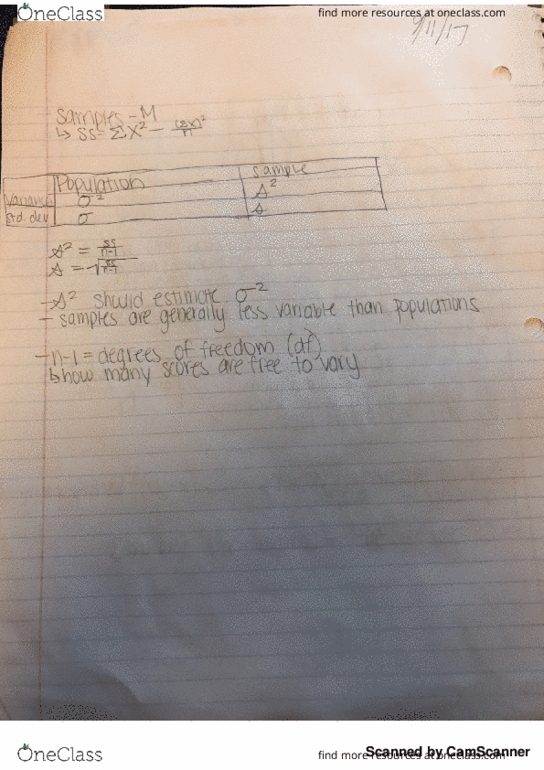 OneClass
find more resources at oneclass.com
9/11/17
samples - M
↳ SS= ΣX² - (Σx)²/n
Population sample
Variance σ² s²
std. dev σ s
s² = SS/n-1
s = √SS/n-1
- s² should estimate σ²
- samples are generally less variable than populations
- n-1 = degrees of freedom (df)
↳ how many scores are free to vary
OneClass
find more resources at oneclass.com
Scanned by CamScanner